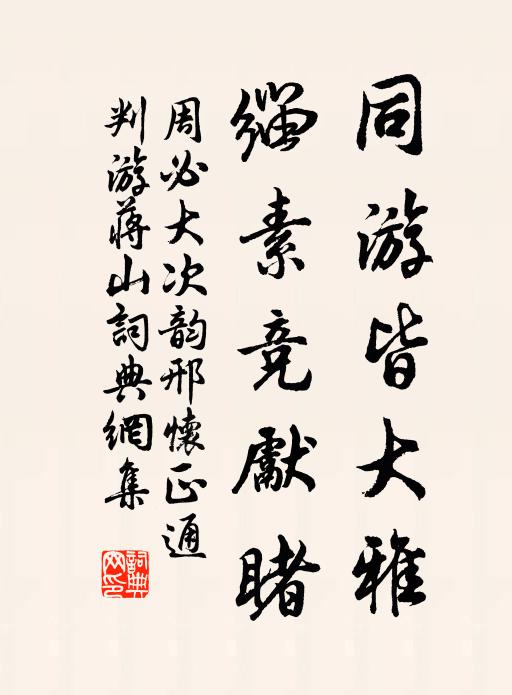 同游皆大雅
缁素竞献睹
周必大次韵邢懷正通
判游蒋山詞典網集
詞典网印